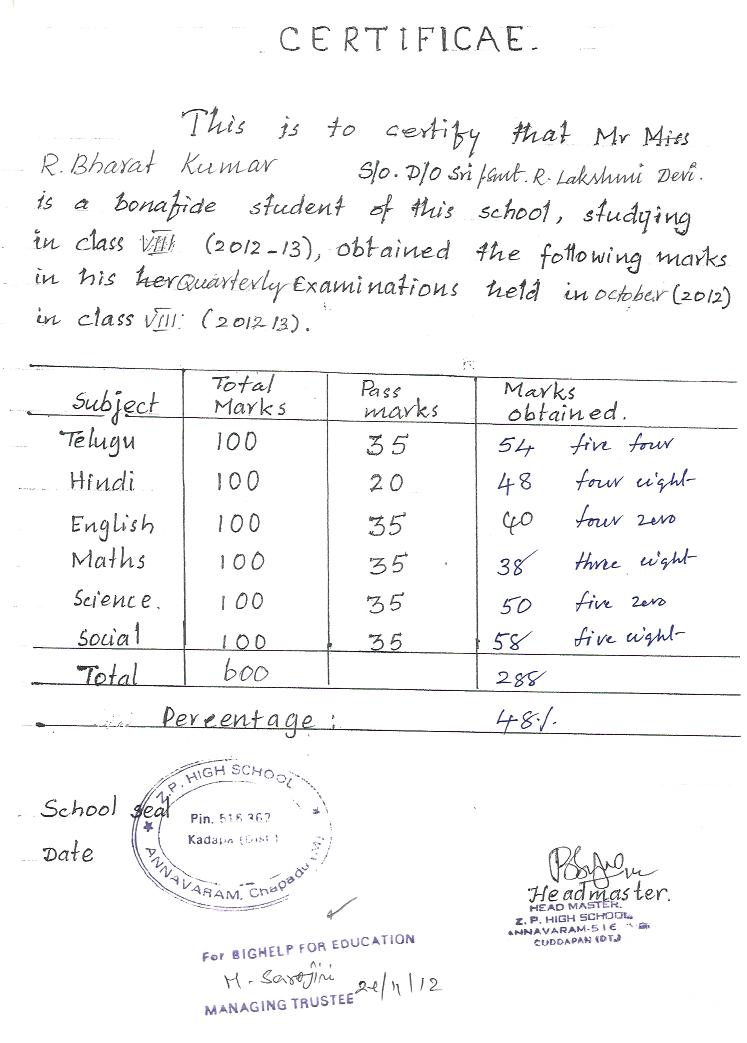 CERTIFICAE.
This is to certify that Mr Miss
R. Bharat Kumar S/o. D/o Sri /smt. R. Lakshmi Devi.
is a bonafide student of this school, studying
in class VIII (2012-13), obtained the following marks
in his her Quarterly Examinations held in october (2012)
in class VIII (2012-13).
Subject Total Marks Pass marks Marks obtained.
Telugu 100 35 54 five four
Hindi 100 20 48 four eight
English 100 35 40 four zero
Maths 100 35 38 three eight
Science. 100 35 50 five zero
Social 100 35 58 five eight
Total 600 288
Percentage : 48%
School seal
Date
Z.P. HIGH SCHOOL
Pin. 516 362
Kadapa
ANNAVARAM, Chapadu
Headmaster.
HEAD MASTER.
Z. P. HIGH SCHOOL
ANNAVARAM-516
CUDDAPAH (DT.)
For BIGHELP FOR EDUCATION
M. Sarojini
MANAGING TRUSTEE